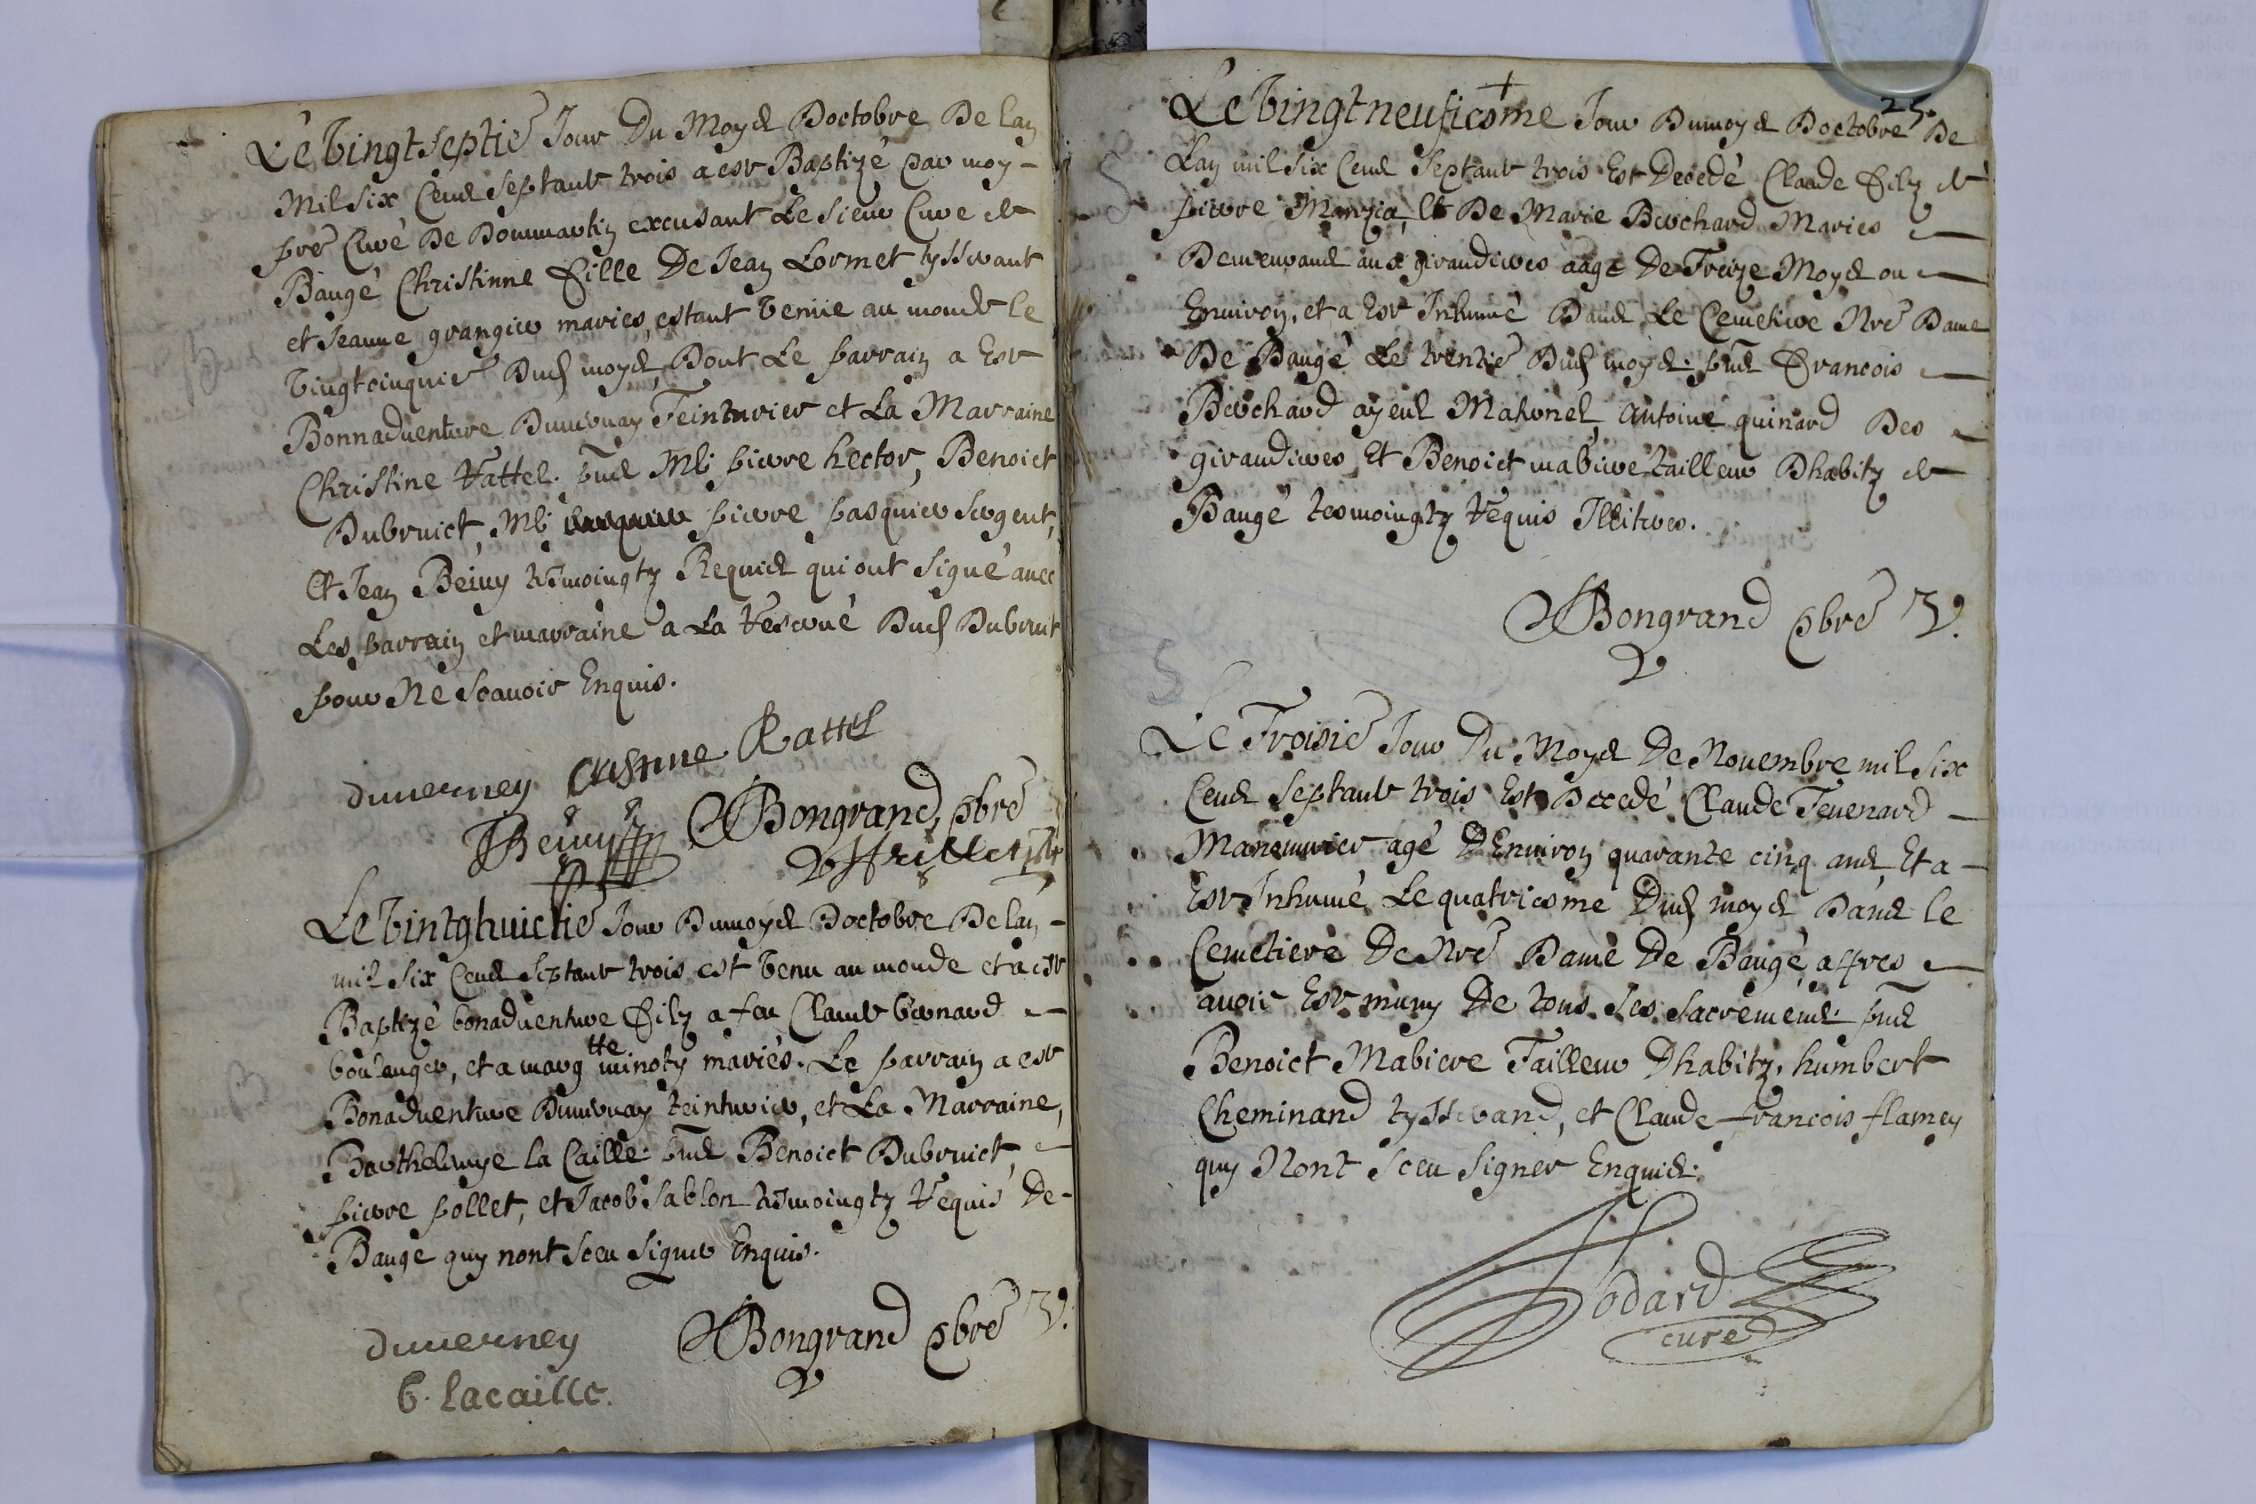 Le vingtseptie Jour Du Moys Doctobre De Lan
Mil Six Cens septante trois a este Baptizé par moy
pre Curé De Dommartin excusant Le sieur Curé de
Baugé Christinne fille De Jean Lormet tysserant
et Jeanne grangier mariés, estant venüe au monde le
vingtcinquie Dud moys, Dont Le parrain a Este
Bonnadventure Duuernay Teinturier et La Marraine
Christine Rattel. pns Me pierre hector, Benoict
Dubruict, Me pierre pasquier sergent,
Et Jean Béiuy tesmoingtz Requis qui ont signé auec
Les parrain et marraine a La reserue Dud Dubruit
pour Ne scauoir Enquis.
duuerney Cristine Rattel
Beiuy Bongrand pbre
Le vintghuictie Jour Du moys Doctobre De lan
mil six Cens septante trois est venu au monde et a este
Baptizé bonaduenture filz a feu Claude bernard
boulanger, et a margtte minoty mariés. Le parrain a este
Bonaduenture Duuernay teinturier, et La Marraine,
Barthelemye la Caille. pns Benoict Dubruict,
pierre pollet, et Jacob Sablon tesmoingtz requis De
Bauge quy nont sceu signer Enquis.
duuerney
Bongrand pbre V.
b. lacaille.
25.
Le vingtneuficsme Jour Du moys Doctobre De
Lan mil six Cens Septante trois Est Decedé Claude filz de
pierre Manzia, Et De Marie Berchard Maries
Demeurans aux giraudieres aage De Treize Moys ou
Enuiron, et a Este Inhumé Dans Le Cemetiere Nre Dame
De Baugé Le trentie Dud moys. pns francois
Berchard ayeul Maternel, antoine quinard Des
giraudieres Et Benoict mabiere tailleur Dhabitz de
Baugé tesmoingtz requis Illitres.
Bongrand pbre V.
Le Troisie Jour Du Moys De Nouembre mil six
Cens septante trois Est Decedé Claude Teuenard
Maneuurier agé DEnuiron quarante cinq ans, Et a
Este Inhumé Le quatriesme Dud moys Dans le
Cemetiere De Nre Dame De Baugé, apres
auoir Este muny De tous ses sacremens. pns
Benoict Mabiere Tailleur Dhabitz, humbert
Cheminand tysserand, et Claude francois flamey
quy Nont sceu signer Enquis.
Godard
curé